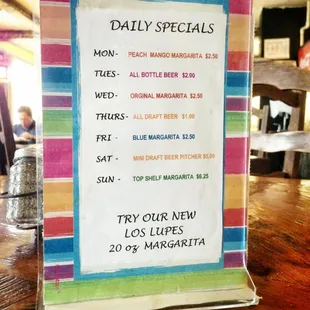 DAILY SPECIALS
MON- PEACH MANGO MARGARITA $2.50
TUES- ALL BOTTLE BEER $2.00
WED- ORGINAL MARGARITA $2.50
THURS- ALL DRAFT BEER $1.00
FRI- BLUE MARGARITA $2.50
SAT- MINI DRAFT BEER PITCHER $5.00
SUN- TOP SHELF MARGARITA $6.25
TRY OUR NEW
LOS LUPES
20 oz MARGARITA